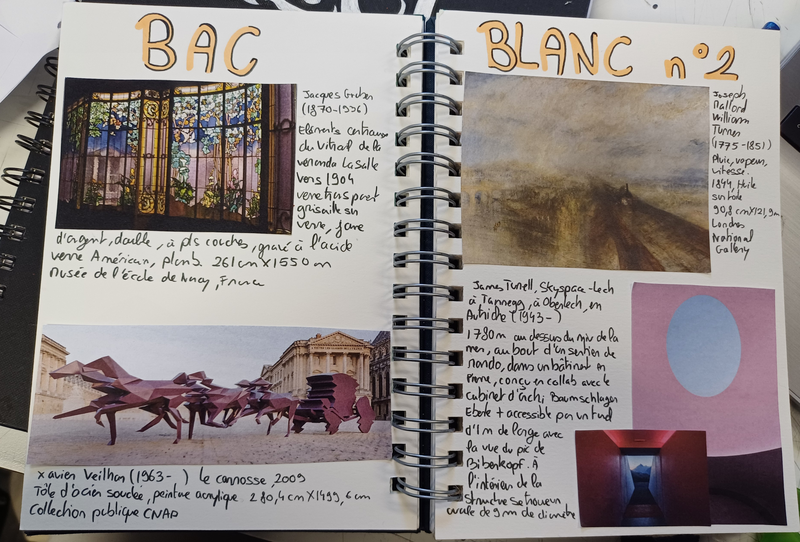 BAC
BLANC n°2
Jacques Gruber
(1870-1936)
Elements centraux
du Vitrail de la
veranda La Salle
vers 1904
verre transparent
grisaille sur
verre, jaune
d'argent, double, à pls couches, gravé à l'acide
verre Américain, plomb. 261 cm X 1550 m
musée de l'école de Nancy, France
xavier Veilhan (1963- ) Le carrosse, 2009
Tôle d'acier soudée, peinture acrylique. 280,4 cm X 1499,6 cm
Collection publique CNAP
Joseph
Mallord
William
Turner
(1775-1851)
Pluie, vapeur,
vitesse.
1844, Huile
sur toile
90,8 cm X 121,9 cm
Londres
National
Gallery
James Turrell, Skyspace-Lech
à Tannegg, à Oberlech, en
Autriche (1943- )
1780 m au dessus du niv de la
mer, au bout d'un sentier de
rando, dans un bâtiment en
Pierre, conçu en collab avec le
cabinet d'archi Baumschlager
Eberle + accessible par un tunnel
d'1 m de large avec
la vue du pic de
Biberkopf. À
l'intérieur de la
Structure se trouve un
ovale de 9 m de diamètre